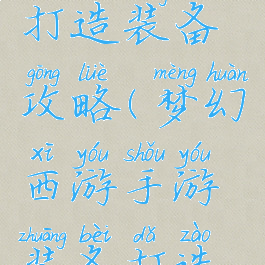 打造装备
gōng lüè mèng huàn
攻略(梦幻
xī yóu shǒu yóu
西游手游
zhuāng bèi dǎ zào
装备打造